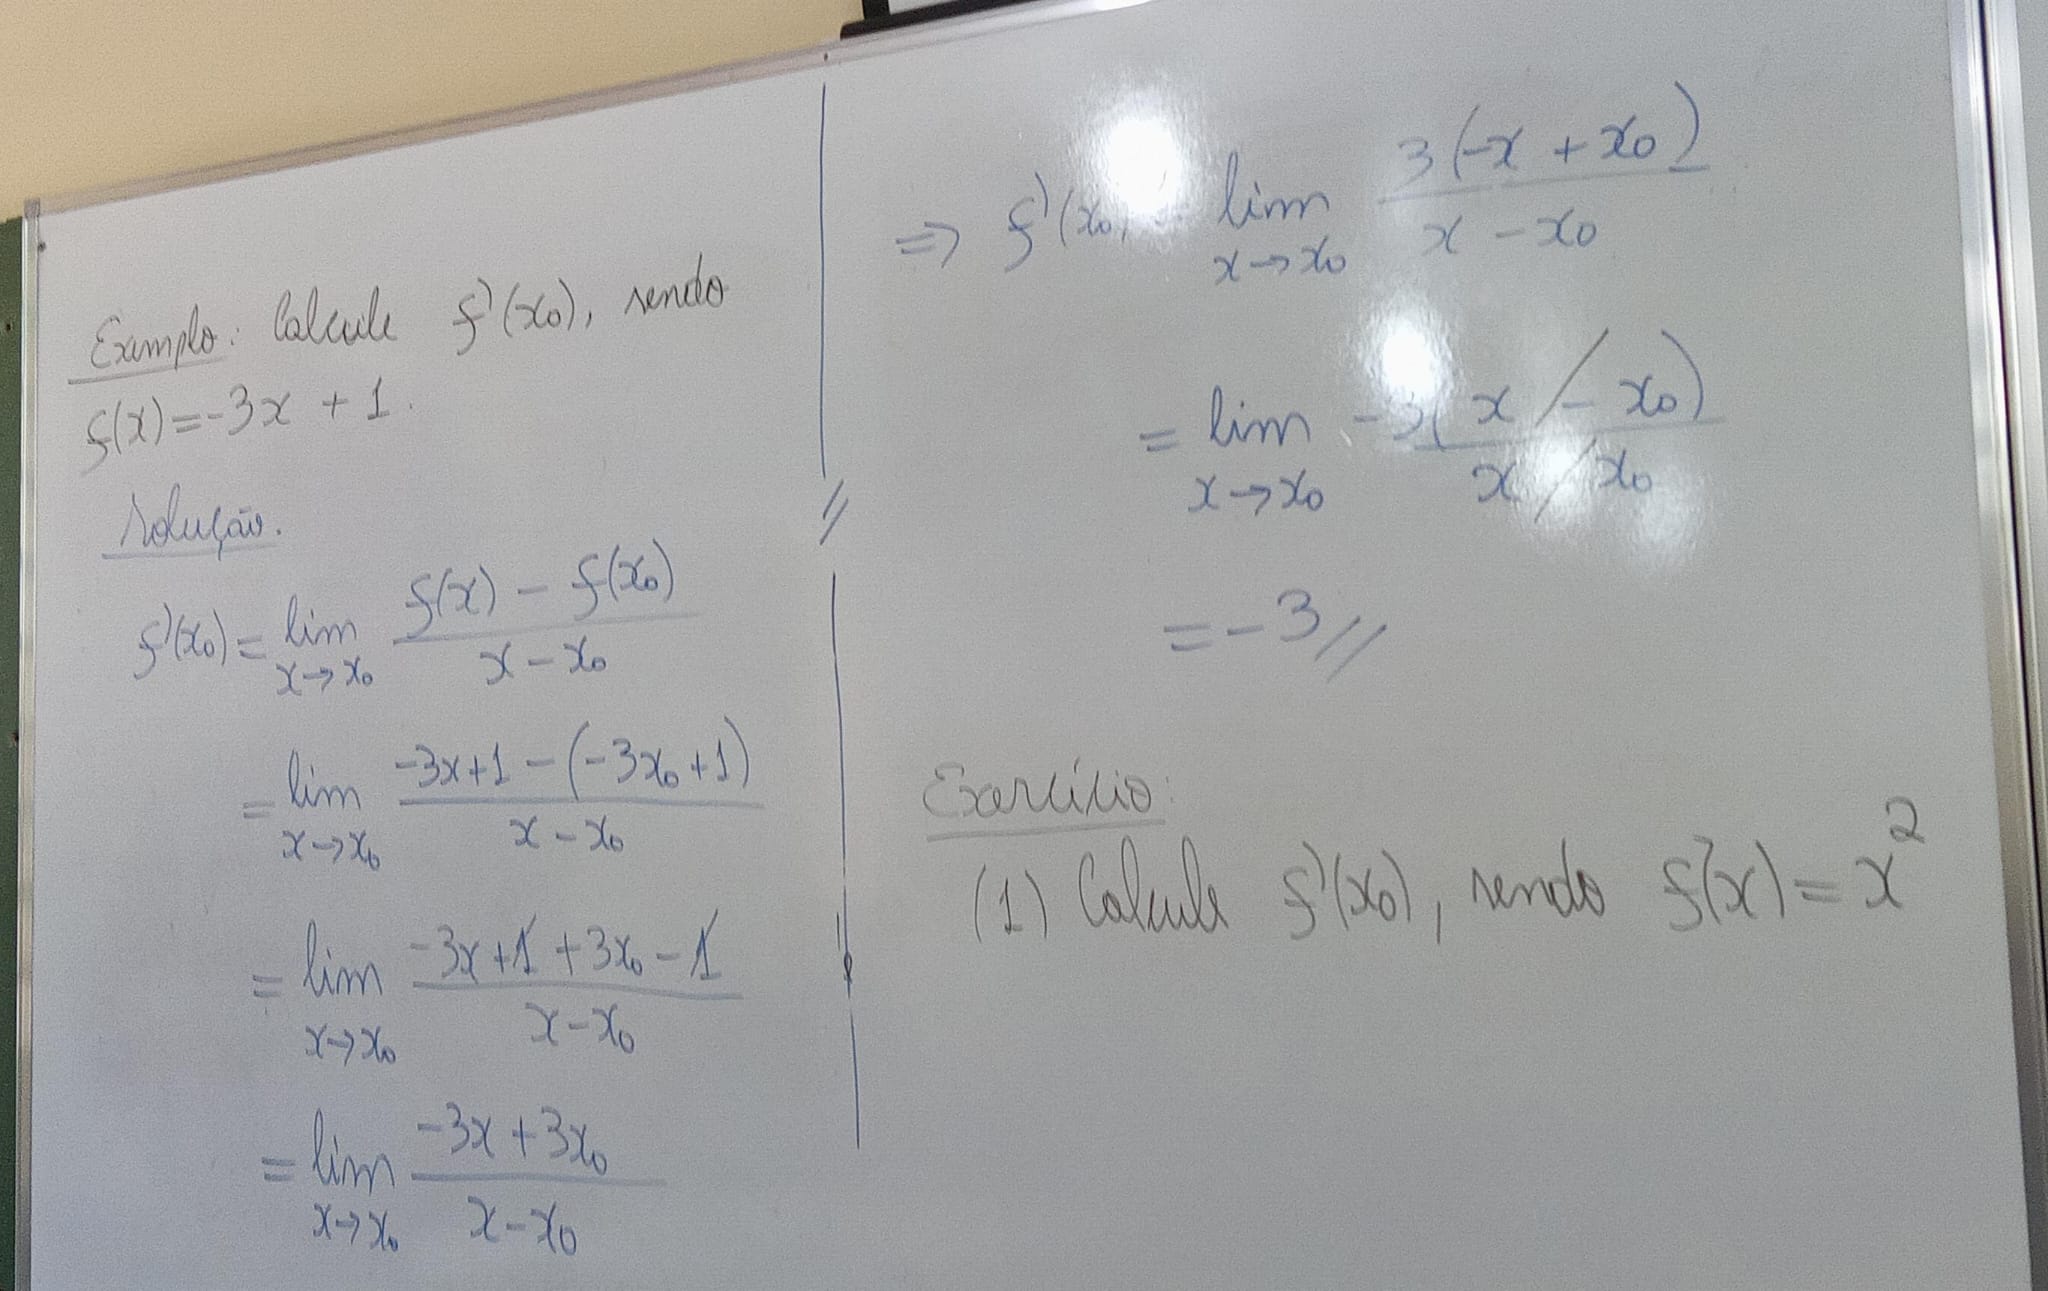 Exemplo: Calcule f'(x₀), sendo
f(x) = -3x + 1.
Solução.
f'(x₀) = lim x→x₀ (f(x) - f(x₀))/(x - x₀)
= lim x→x₀ (-3x+1-(-3x₀+1))/(x - x₀)
= lim x→x₀ (-3x+1+3x₀-1)/(x-x₀)
= lim x→x₀ (-3x+3x₀)/(x-x₀)
⇒ f'(x₀) = lim x→x₀ 3(-x + x₀)/(x - x₀)
= lim x→x₀ -3(x - x₀)/(x - x₀)
= -3//
Exercício:
(1) Calcule f'(x₀), sendo f(x) = x²